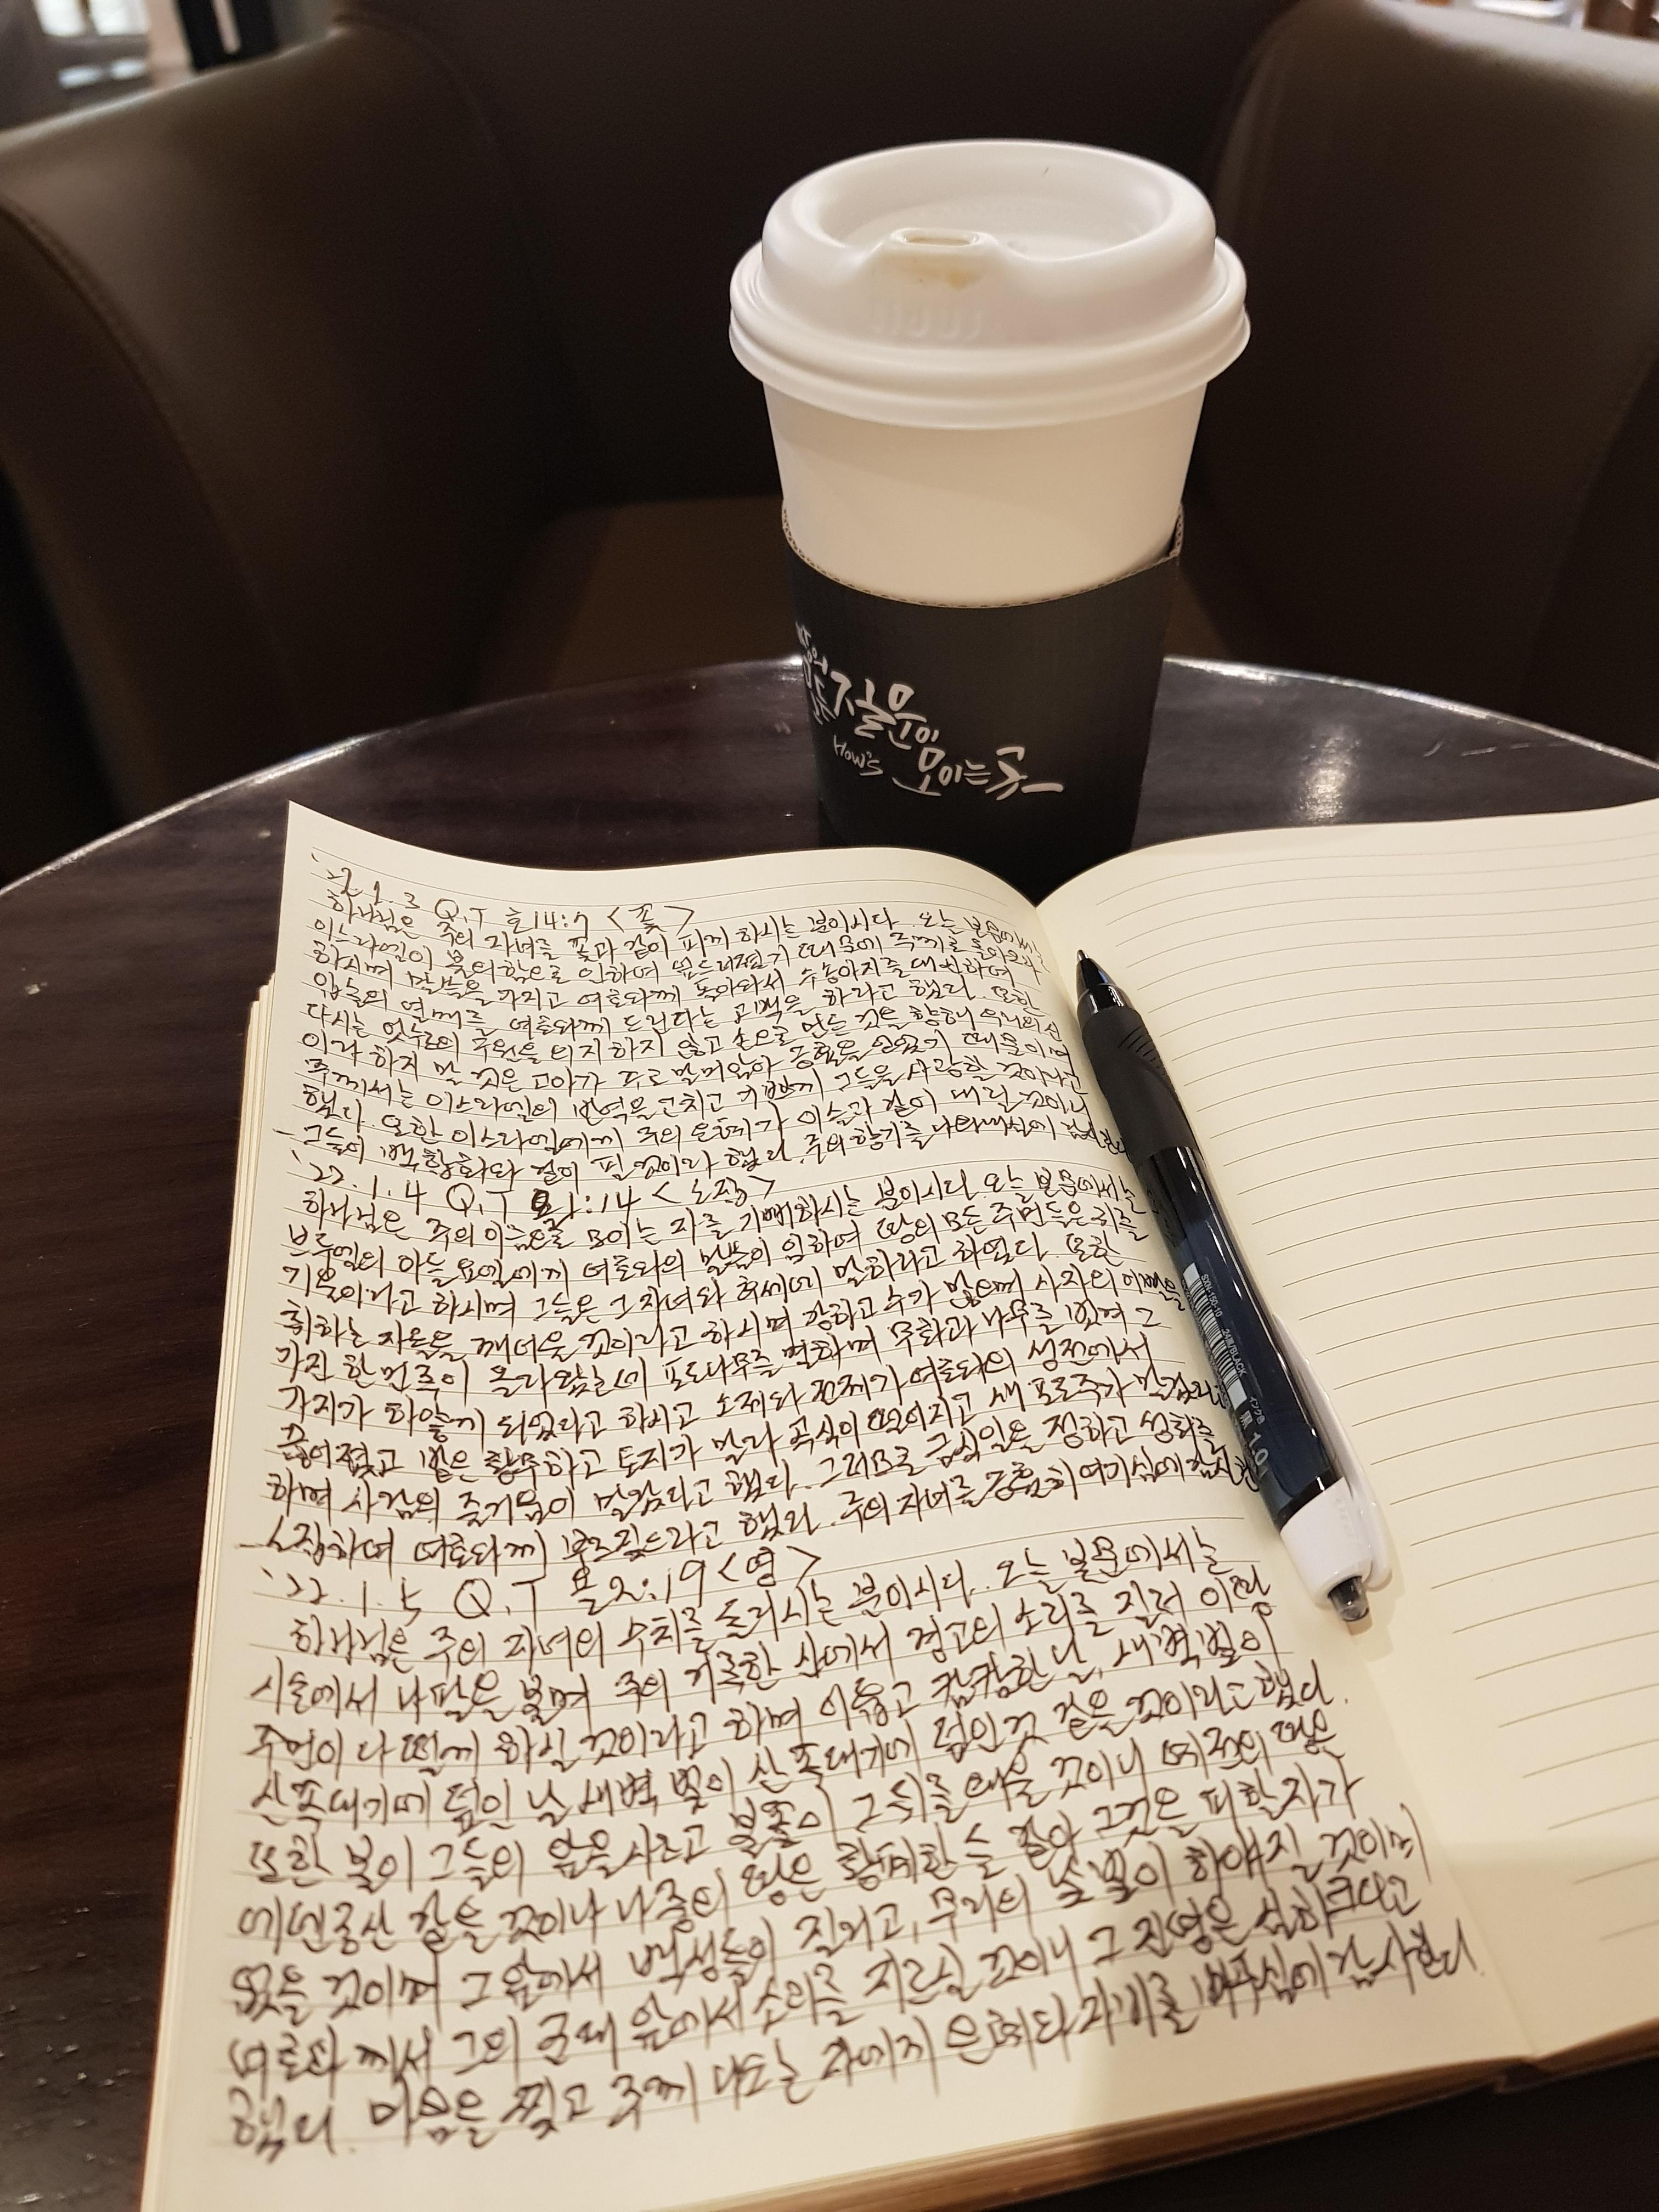 질문이
HOW'S 모이는 곳
'22.1.3 Q.T 호14:7 <꽃>
하나님은 주의 자녀를 꽃과 같이 피게 하시는 분이시다. 오늘 본문에서
이스라엘이 불의함으로 인하여 엎드러졌기 때문에 주께로 돌아오라
하시며 말씀을 가지고 여호와께 돌아와서 수송아지를 대신하여
입술의 열매를 여호와께 드린다는 고백을 하라고 했다. 또한
다시는 앗수르의 구원을 의지하지 않고 손으로 만든 것을 향해 우리의 신
이라 하지 말 것은 고아가 주로 말미암아 긍휼을 얻었기 때문이며
주께서는 이스라엘의 반역을 고치고 기쁘게 그들을 사랑할 것이라고
했다. 또한 이스라엘에게 주의 은혜가 이슬과 같이 내릴 것이니
그들이 백합화와 같이 필 것이라 했다. 주의 향기를 나타내심에 감사한다
'22.1.4 Q.T 욜1:14 <소집>
하나님은 주의 이름으로 모이는 자를 기뻐하시는 분이시다. 오늘 본문에서는
브두엘의 아들 요엘에게 여호와의 말씀이 임하여 땅의 모든 주민들은 귀를
기울이라고 하시며 그들은 그 자녀와 후세에 말하라고 하였다. 또한
취하는 자들을 깨어있을 것이라고 하시며 강하고 수가 많으며 사자의 이빨을
가진 한 민족이 올라왔는데 포도나무를 멸하며 무화과 나무를 벗겨 그
가지가 하얗게 되었다고 하시고 소제와 전제가 여호와의 성전에서
끊어졌고 밭은 황무하고 토지가 말라 곡식이 떨어지고 새 포도주가 말랐다고
하며 사람의 즐거움이 말랐다고 했다. 그러므로 금식일을 정하고 성회를
소집하여 여호와께 부르짖으라고 했다. 주의 자녀를 긍휼히 여기심에 감사한다
'22.1.5 Q.T 욜2:19 <영>
하나님은 주의 자녀의 수치를 돌리시는 분이시다. 오늘 본문에서는
시온에서 나팔을 불며 주의 거룩한 산에서 경고의 소리를 질러 이 땅
주민이 다 떨게 하실 것이라고 하며 어둡고 캄캄한 날, 새벽 빛이
산 꼭대기에 덮인 날 새벽 빛이 산 꼭대기에 덮인 것 같은 것이라고 했다.
또한 불이 그들의 앞을 사르고 불꽃이 그 뒤를 태울 것이니 예전의 땅은
에덴동산 같을 것이나 나중의 땅은 황폐한 들 같아 그것을 피할 자가
없을 것이며 그 앞에서 백성들이 질리고, 무리의 낯빛이 하얘질 것이며
여호와께서 그의 군대 앞에서 소리를 지르실 것이니 그 진영은 심히 크다고
했다. 마음을 찢고 주께 나오는 자에게 은혜와 자비를 베푸심에 감사한다.
SXN-150-10 24黒/BLACK インク色
黒 1.0